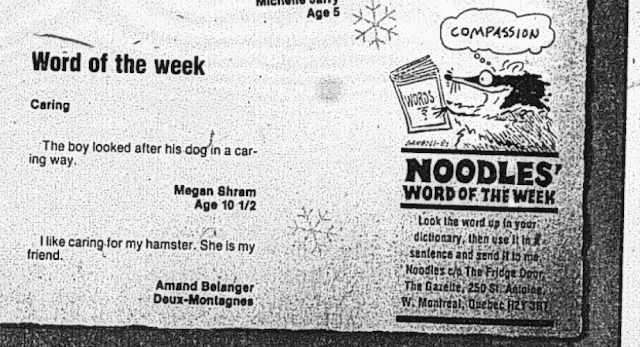 Michelle
Age 5
Word of the week
Caring
The boy looked after his dog in a car-
ing way.
Megan Shram
Age 10 1/2
I like caring for my hamster. She is my
friend.
Amand Belanger
Deux-Montagnes
COMPASSION
WORDS
NOODLES'
WORD OF THE WEEK
Look the word up in your
dictionary, then use it in a
sentence and send it to me,
Noodles c/o The Fridge Door,
The Gazette, 250 St. Antoine,
W. Montreal, Quebec H2Y 3R7